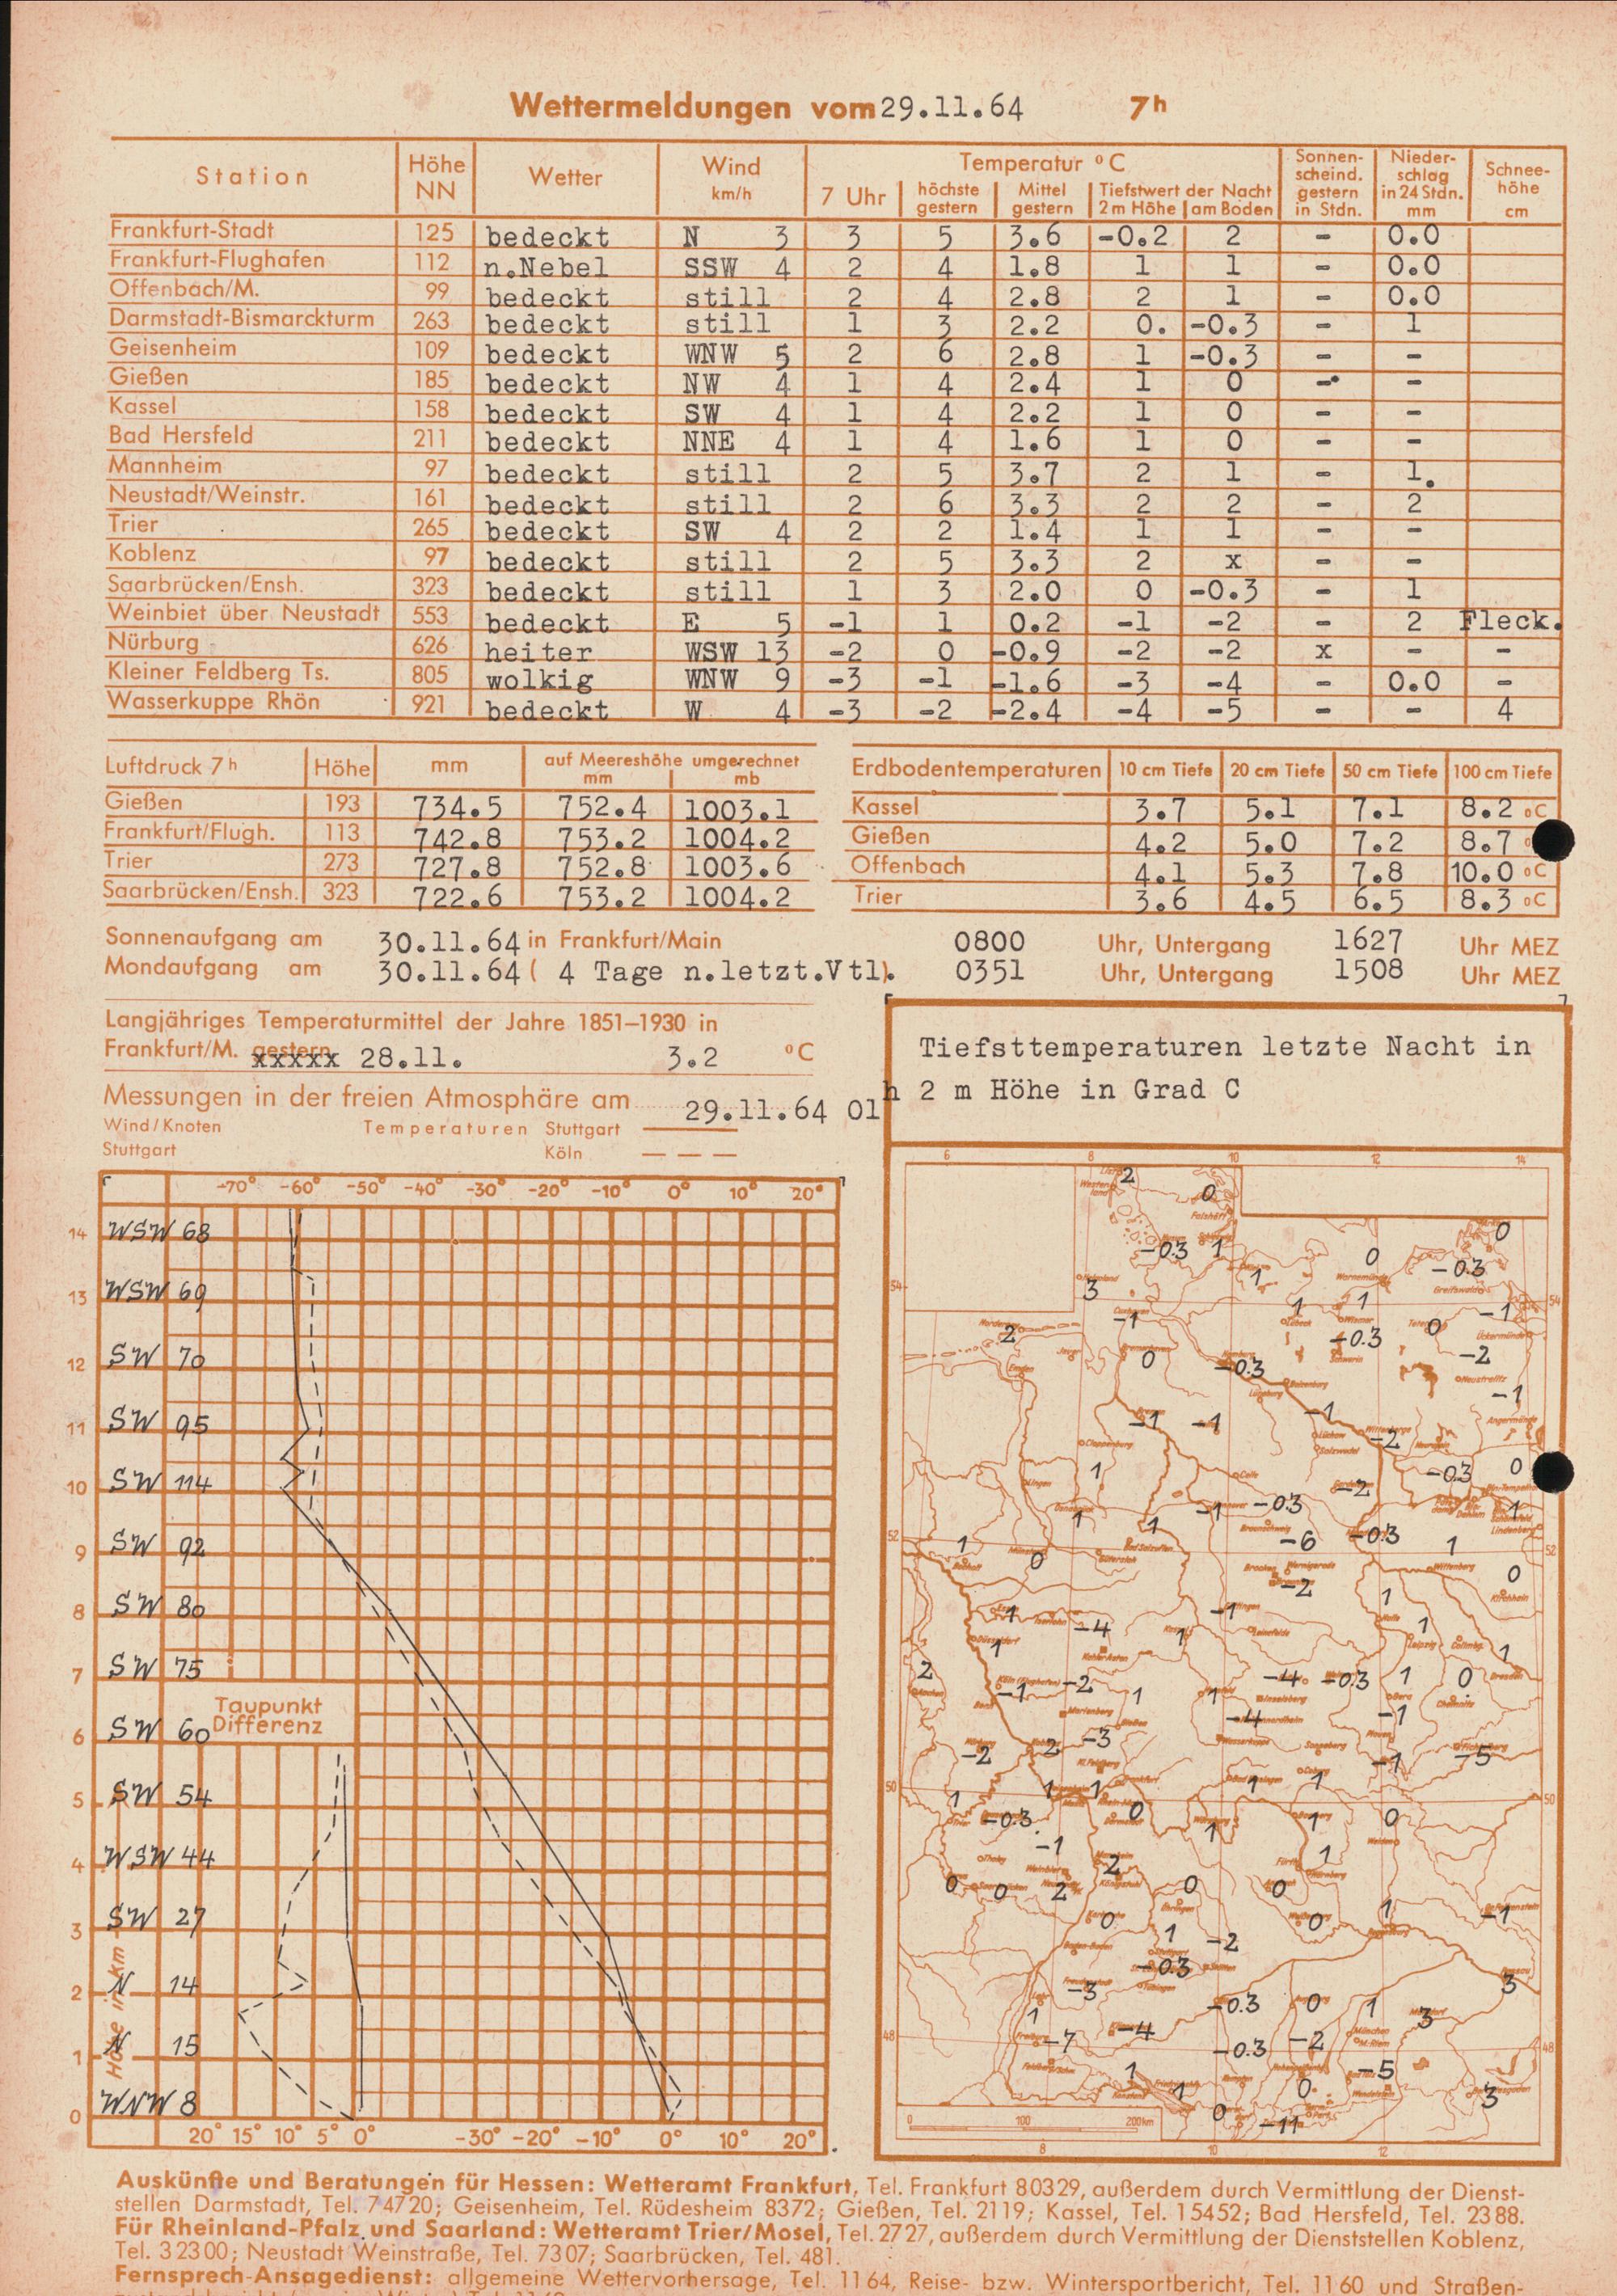 Wettermeldungen vom 29.11.64 7h
Station Höhe NN Wetter Wind km/h Temperatur °C 7 Uhr höchste gestern Mittel gestern Tiefstwert der Nacht 2 m Höhe am Boden Sonnen-scheind. gestern in Stdn. Nieder-schlag in 24 Stdn. mm Schnee-höhe cm
Frankfurt-Stadt 125 bedeckt N 3 3 5 3.6 -0.2 2 - 0.0
Frankfurt-Flughafen 112 n.Nebel SSW 4 2 4 1.8 1 1 - 0.0
Offenbach/M. 99 bedeckt still 2 4 2.8 2 1 - 0.0
Darmstadt-Bismarckturm 263 bedeckt still 1 3 2.2 0. -0.3 - 1
Geisenheim 109 bedeckt WNW 5 2 6 2.8 1 -0.3 - -
Gießen 185 bedeckt NW 4 1 4 2.4 1 0 - -
Kassel 158 bedeckt SW 4 1 4 2.2 1 0 - -
Bad Hersfeld 211 bedeckt NNE 4 1 4 1.6 1 0 - -
Mannheim 97 bedeckt still 2 5 3.7 2 1 - 1.
Neustadt/Weinstr. 161 bedeckt still 2 6 3.3 2 2 - 2
Trier 265 bedeckt SW 4 2 2 1.4 1 1 - -
Koblenz 97 bedeckt still 2 5 3.3 2 x - -
Saarbrücken/Ensh. 323 bedeckt still 1 3 2.0 0 -0.3 - 1
Weinbiet über Neustadt 553 bedeckt E 5 -1 1 0.2 -1 -2 - 2 Fleck.
Nürburg 626 heiter WSW 13 -2 0 -0.9 -2 -2 x - -
Kleiner Feldberg Ts. 805 wolkig WNW 9 -3 -1 -1.6 -3 -4 - 0.0 -
Wasserkuppe Rhön 921 bedeckt W 4 -3 -2 -2.4 -4 -5 - - 4
Luftdruck 7h Höhe mm auf Meereshöhe umgerechnet mm mb
Gießen 193 734.5 752.4 1003.1
Frankfurt/Flugh. 113 742.8 753.2 1004.2
Trier 273 727.8 752.8 1003.6
Saarbrücken/Ensh. 323 722.6 753.2 1004.2
Erdbodentemperaturen 10 cm Tiefe 20 cm Tiefe 50 cm Tiefe 100 cm Tiefe
Kassel 3.7 5.1 7.1 8.2 °C
Gießen 4.2 5.0 7.2 8.7
Offenbach 4.1 5.3 7.8 10.0 °C
Trier 3.6 4.5 6.5 8.3 °C
Sonnenaufgang am 30.11.64 in Frankfurt/Main 0800 Uhr, Untergang 1627 Uhr MEZ
Mondaufgang am 30.11.64 ( 4 Tage n.letzt.Vtl). 0351 Uhr, Untergang 1508 Uhr MEZ
Langjähriges Temperaturmittel der Jahre 1851–1930 in
Frankfurt/M. gestern xxxxx 28.11. 3.2 °C
Messungen in der freien Atmosphäre am 29.11.64 01h
Wind/Knoten Temperaturen Stuttgart
Stuttgart Köln
-70° -60° -50° -40° -30° -20° -10° 0° 10° 20°
14 WSW 68
13 WSW 69
12 SW 70
11 SW 95
10 SW 114
9 SW 92
8 SW 80
7 SW 75
Taupunkt
Differenz
6 SW 60
5 SW 54
4 WSW 44
3 SW 27
2 N 14
1 N 15
0 WNW 8
Höhe in km
20° 15° 10° 5° 0° -30° -20° -10° 0° 10° 20°
Tiefsttemperaturen letzte Nacht in
2 m Höhe in Grad C
6 8 10 12 14
2 0
-0.3 1 0 0
3 1 -0.3
54 54
-1 1 1 -1
2 -0.3 0
0 -0.3 -2
-1
-1 -1 -1 -2
1 -0.3 0
-2
1 1 -1 -0.3 1
52 52
1 0 -6 -0.3 1
-2 0
1 -4 -1 1 1
1 1 1
2 -1 -2 1 1 -4 -0.3 1 0
-4 -1
-2 2 -3 -1 -5
50 50
1 1 1 1 1
-0.3 0 1 1 0
-1 2 1
0 0 2 0 0
0 1 -2 0 1 -1
-0.3
-3 3
1 -0.3 0 1 3
48 48
-7 -4 -0.3 -2
1 1 0 -5 3
0 -11
0 100 200km
8 10 12
Auskünfte und Beratungen für Hessen: Wetteramt Frankfurt, Tel. Frankfurt 80329, außerdem durch Vermittlung der Dienst-
stellen Darmstadt, Tel. 74720; Geisenheim, Tel. Rüdesheim 8372; Gießen, Tel. 2119; Kassel, Tel. 15452; Bad Hersfeld, Tel. 2388.
Für Rheinland-Pfalz und Saarland: Wetteramt Trier/Mosel, Tel. 2727, außerdem durch Vermittlung der Dienststellen Koblenz,
Tel. 32300; Neustadt Weinstraße, Tel. 7307; Saarbrücken, Tel. 481.
Fernsprech-Ansagedienst: allgemeine Wettervorhersage, Tel. 1164, Reise- bzw. Wintersportbericht, Tel. 1160 und Straßen-